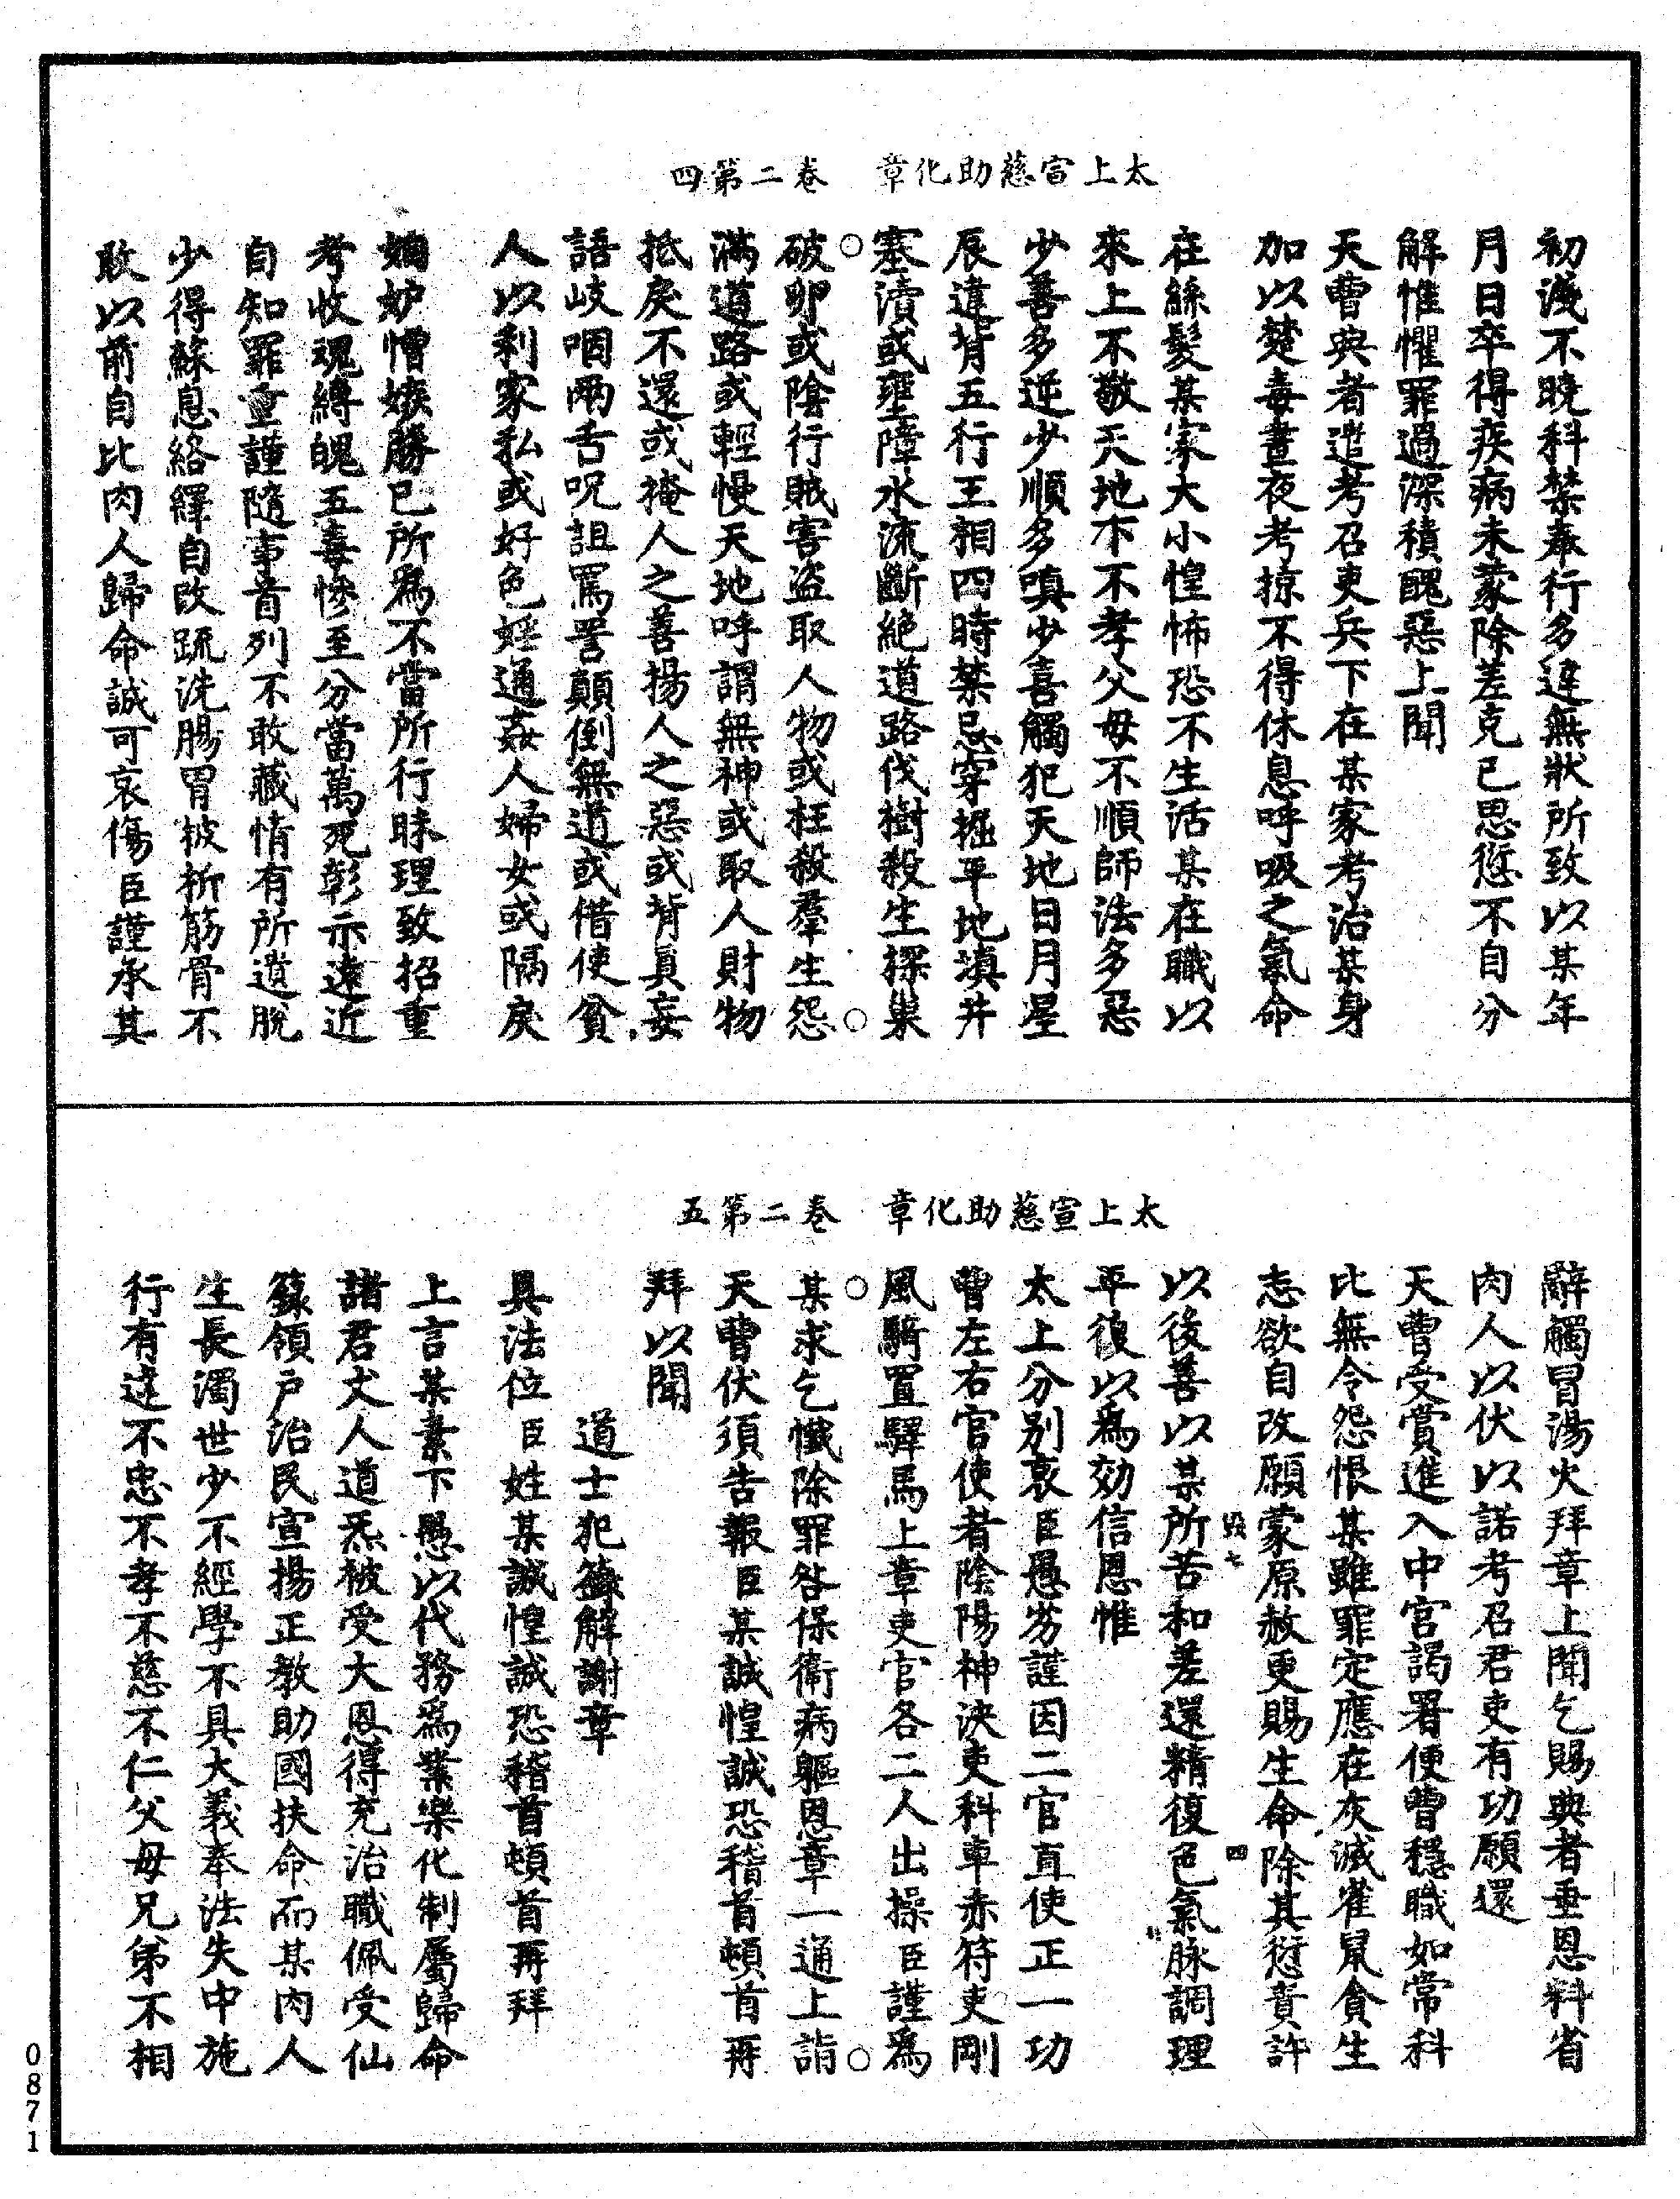 太上宣慈助化章　卷二第四
初淺不曉科禁奉行多違無狀所致以某年
月日卒得疾病未蒙除差克己思愆不自分
解惟懼罪過深積醜惡上聞
天曹典者遣考召吏兵下在某家考治某身
加以楚毒晝夜考掠不得休息呼吸之氣命
在絲髮某家大小惶怖恐不生活某在職以
來上不敬天地下不孝父母不順師法多惡
少善多逆少順多嗔少喜觸犯天地日月星
辰違背五行王相四時禁忌穿掘平地填井
塞瀆或壅障水流斷絕道路伐樹殺生探巢
破卵或陰行賊害盜取人物或枉殺羣生怨
滿道路或輕慢天地呼謂無神或取人財物
抵戾不還或掩人之善揚人之惡或背真妄
語岐咽兩舌呪詛罵詈顛倒無道或借使貧
人以利家私或好色婬通姦人婦女或隔戾
嫺妒憎嫉勝己所為不當所行昧理致招重
考收魂縛魄五毒慘至分當萬死彰示遠近
自知罪重謹隨事首列不敢藏情有所遺脫
少得蘇息絡繹自改疏洗腸胃披析筋骨不
敢以前自比肉人歸命誠可哀傷臣謹承其
太上宣慈助化章　卷二第五
辭觸冒湯火拜章上聞乞賜典者垂恩料省
肉人以伏以諾考召君吏有功願還
天曹受賞進入中宮謁署便曹穩職如常科
比無令怨恨某雖罪定應在灰滅雀鼠貪生
志欲自改願蒙原赦更賜生命除其愆責許
毀七　四
以後善以某所苦和差還精復色氣脉調理
平復以為効信恩惟
太上分別哀臣愚劣謹因二官直使正一功
曹左右官使者陰陽神決吏科車赤符吏剛
風騎置驛馬上章吏官各二人出操臣謹為
某求乞懺除罪咎保衛病軀恩章一通上詣
天曹伏須告報臣某誠惶誠恐稽首頓首再
拜以聞
道士犯籙解謝章
具法位臣姓某誠惶誠恐稽首頓首再拜
上言某素下愚以代務為業樂化制屬歸命
諸君丈人道炁被受大恩得充治職佩受仙
籙領户治民宣揚正教助國扶命而某肉人
生長濁世少不經學不具大義奉法失中施
行有違不忠不孝不慈不仁父母兄弟不相
0871